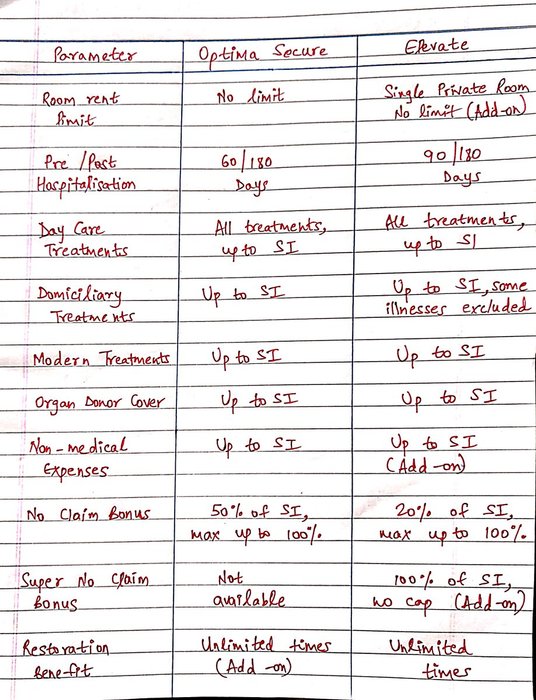 Parameter Optima Secure Elevate
Room rent No limit Single Private Room
limit No limit (Add-on)
Pre /Post 60/180 90/180
Hospitalisation Days Days
Day Care All treatments, All treatments,
Treatments up to SI up to SI
Domiciliary Up to SI Up to SI, some
Treatments illnesses excluded
Modern Treatments Up to SI Up to SI
Organ Donor Cover Up to SI Up to SI
Non-medical Up to SI Up to SI
Expenses (Add-on)
No Claim Bonus 50% of SI, 20% of SI,
max up to 100%. max up to 100%.
Super No Claim Not 100% of SI,
Bonus available no cap (Add-on)
Restoration Unlimited times Unlimited
Benefit (Add-on) times